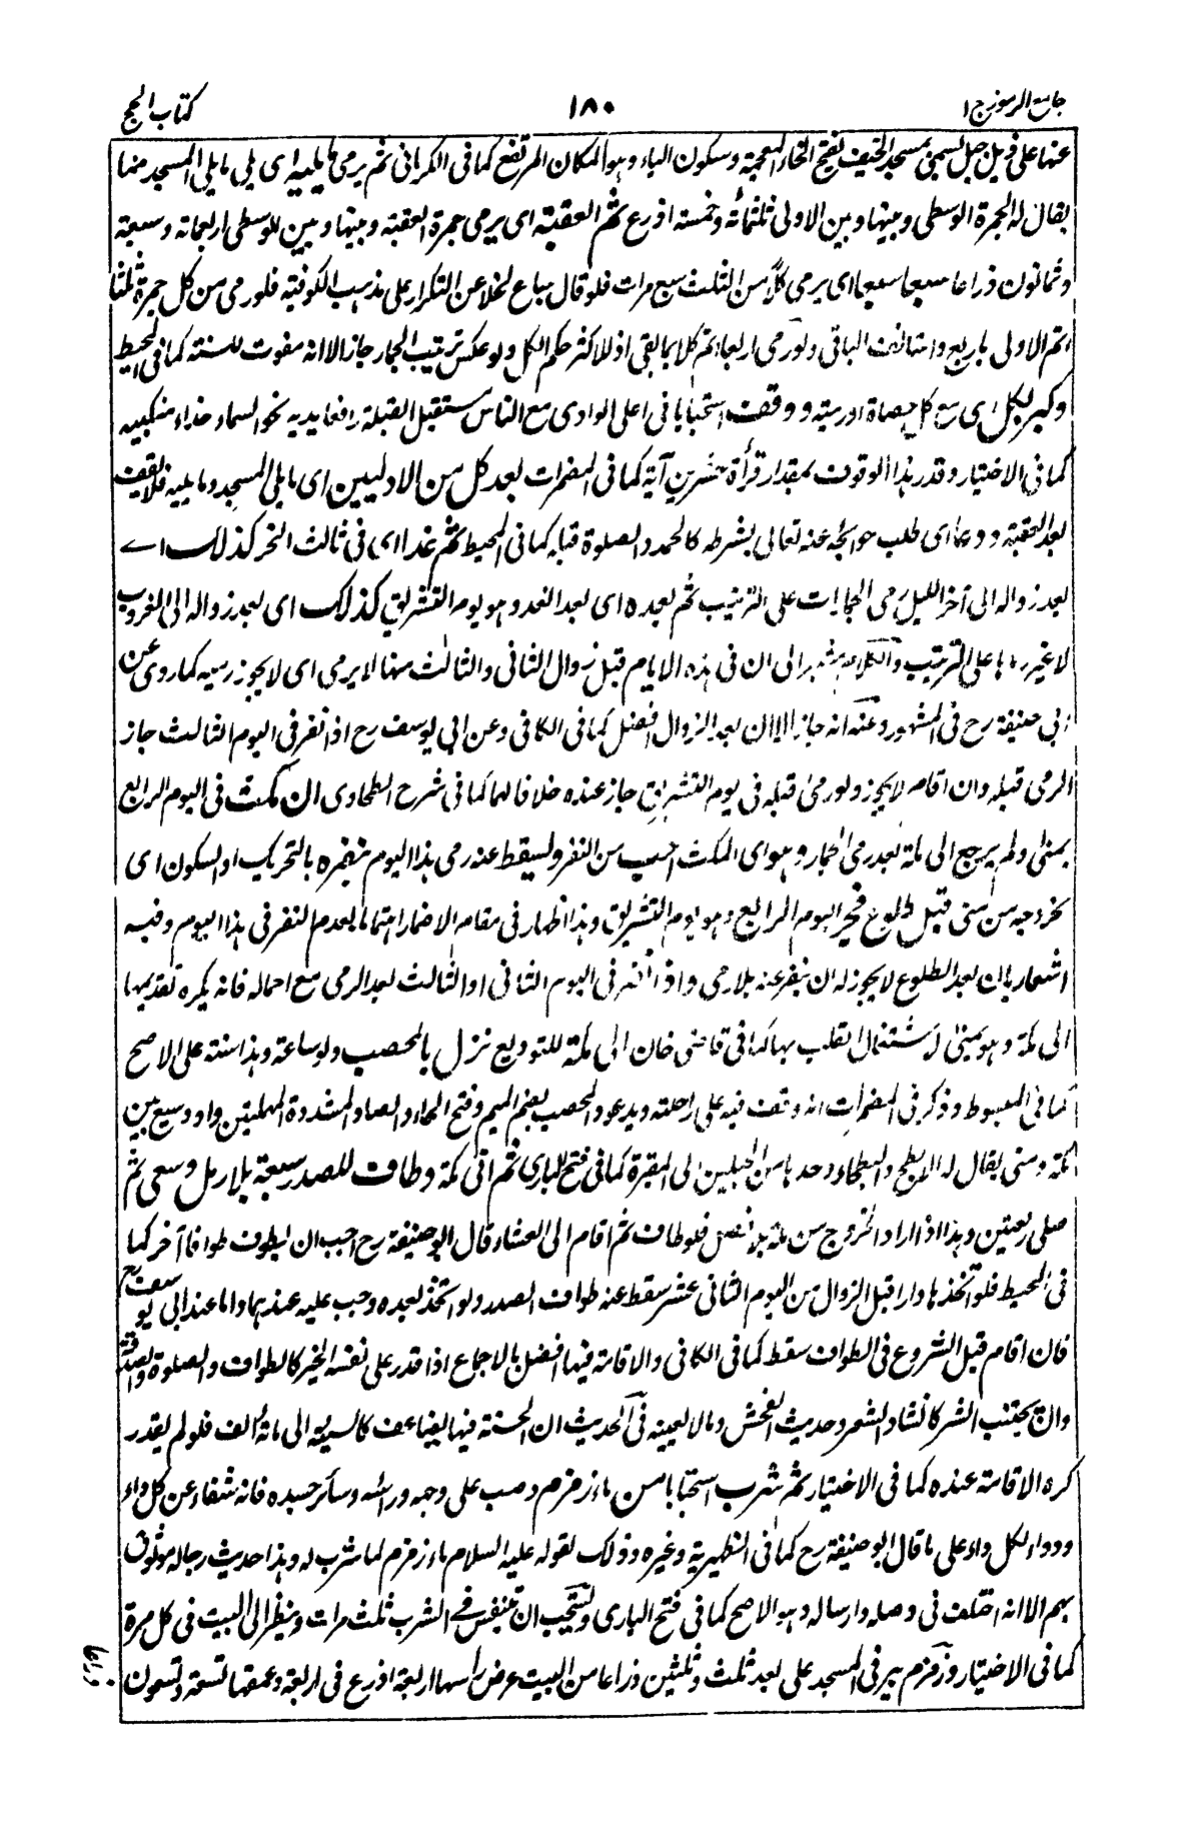 جامع الرموز ج ۱
۱۸۰
كتاب الحج
عنها على ذيل جبل يسمى بمسجد الخيف بفتح الخاء المعجمة وسكون الياء وهو المكان المرتفع كما فى الكرمانى ثم يرمى ما يليه اى يلى ما يلى المسجد منها
يقال له الجمرة الوسطى وبينها وبين الاولى ثلثمائة وخمسة اذرع ثم العقبة اى يرمى جمرة العقبة وبينها وبين الوسطى اربعمائة وسبعة
وثمانون ذراعا سبعا سبعا اى يرمى كلا من الثلث سبع مرات فلو قال سباع لخلا عن التكرار على مذهب الكوفية فلو رمى من كل جمرة ثلثا
اتم الاولى باربع واستانف الباقى ولو رمى اربعا اتم كلا بما بقى اذ للاكثر حكم الكل ولو عكس ترتيب الجمار جاز الا انه مفوت للسنة كما فى المحيط
وكبر لكل اى مع كل حصاة او رميته و وقف استحبابا فى اعلى الوادى مع الناس مستقبل القبلة رافعا يديه نحو السماء حذاء منكبيه
كما فى الاختيار وقدر هذا الوقوف بمقدار قرأة عشرين آية كما فى المضمرات بعد كل من الاوليين اى ما يلى المسجد وما يليه فلا يقف
بعد العقبة و دعا اى طلب حوائجه عنه تعالى بشرطه كالحمد والصلوة قبله كما فى المحيط ثم غدا اى فى ثالث النحر كذلك اے
بعد زواله الى آخر الليل رمى الجمرات على الترتيب ثم بعده اى بعد الغد وهو يوم التشريق كذلك اى بعد زواله الى الغروب
لا غير رماها على الترتيب والكلام مشير الى ان فى هذه الايام قبل زوال الثانى والثالث منها لا يرمى اى لا يجوز رميه كما روى عن
ابى حنيفة رح فى المشهور وعنه انه جاز الا ان بعد الزوال افضل كما فى الكافى وعن ابى يوسف رح اذا نفر فى اليوم الثالث جاز
الرمى قبله وان اقام لا يجوز ولو رمى قبله فى يوم التشريق جاز عنده خلافا لهما كما فى شرح الطحاوى ان مكث فى اليوم الرابع
بمنى ولم يرجع الى مكة بعد رمى الجمار وهو اى المكث احب من النفر ويسقط عنه رمى هذا اليوم بنفره بالتحريك او السكون اى
بخروجه من منى قبل طلوع فجر اليوم الرابع وهو يوم التشريق وهذا اظهار فى مقام الاضمار اهتماما بعدم النفر فى هذا اليوم وفيه
اشعار بان بعد الطلوع لا يجوز له ان ينفر عنه بلا رمى و اذا نفر فى اليوم الثانى او الثالث بعد الرمى مع احماله فانه يكره تقديمها
الى مكة وهو بمنى لاشتغال القلب بها كما فى قاضى خان الى مكة للتوديع نزل بالمحصب ولو ساعة وهذا سنة على الاصح
كما فى المبسوط وذكر فى المضمرات انه وقف فيه على راحلته ويدعو والمحصب بضم الميم وفتح الحاء والصاد المشددة المهملتين واد وسيع بين
مكة ومنى يقال له الابطح والبطحاء وحدها من الجبلين الى المقبرة كما فى فتح البارى ثم اتى مكة وطاف للصدر سبعة بلا رمل وسعى ثم
صلى ركعتين وهذا اذا اراد الخروج من مكة بلا فصل فلو طاف ثم اقام الى العشاء قال ابو حنيفة رح احب ان يطوف طوافا آخر كما
فى المحيط فلو اتخذها دارا قبل الزوال من اليوم الثانى عشر سقط عنه طواف الصدر ولو اتخذ بعده وجب عليه عندهما واما عند ابى يوسف رح
فان اقام قبل الشروع فى الطواف سقط كما فى الكافى والاقامة فيها افضل بالاجماع اذا قدر على نفسه الخير كالطواف والصلوة والصدقة
وان يجتنب الشر كانشاد الشعر وحديث الفحش وما لا يعينه فى الحديث ان الحسنة فيها يضاعف كالسيئة الى مائة الف فلو لم يقدر
كره الاقامة عنده كما فى الاختيار ثم شرب استحبابا من ماء زمزم وصب على وجهه ورأسه وسائر جسده فانه شفاء عن كل داء
ودواء لكل داء على ما قال ابو حنيفة رح كما فى الظهيرية وغيره وذلك لقوله عليه السلام ماء زمزم لما شرب له وهذا حديث رجاله موثوق
بهم الا انه اختلف فى وصله وارساله وهو الاصح كما فى فتح البارى ويستحب ان يتنفس فے الشرب ثلث مرات وينظر الى البيت فى كل مرة
كما فى الاختيار وزمزم بير فى المسجد على بعد ثلث وثلثين ذراعا من البيت عرض راسها اربعة اذرع فى اربعة وعمقها تسعة وتسعون
ذراعا